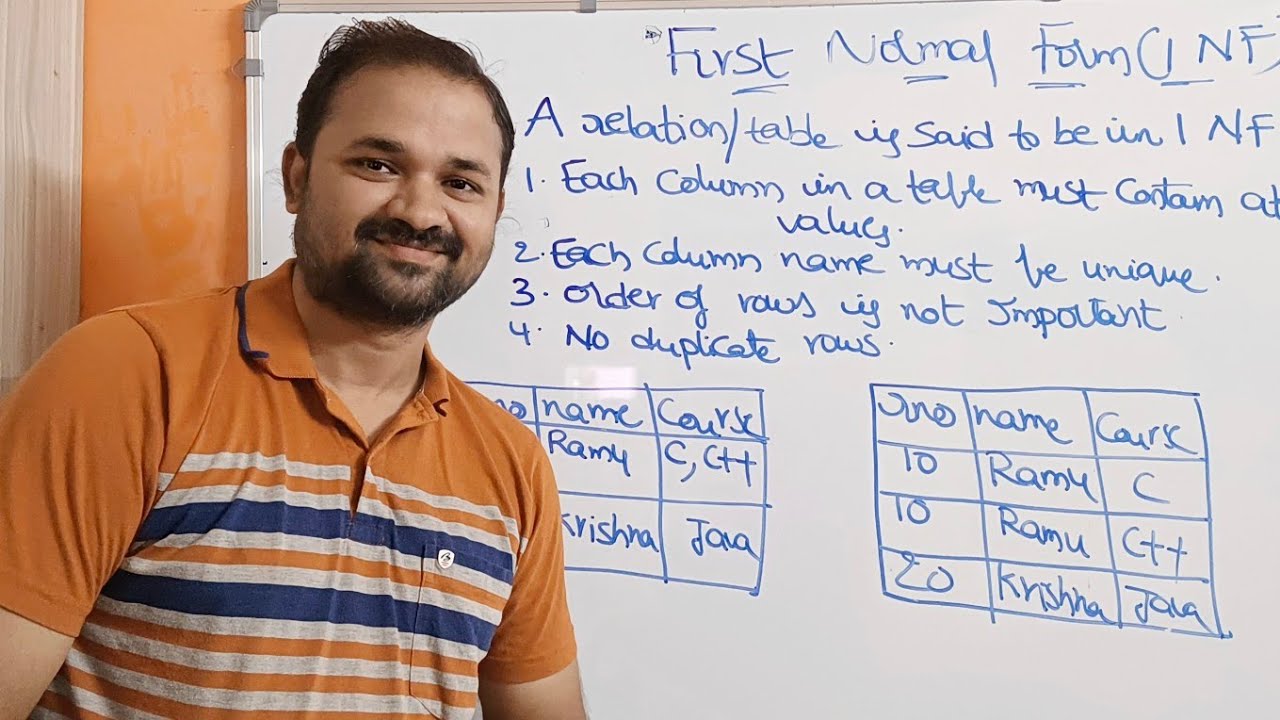 First Normal Form (1 NF)
A relation/table is said to be in 1 NF
1. Each column in a table must contain at
values.
2. Each column name must be unique.
3. Order of rows is not Important.
4. No duplicate rows.
no name Course
Ramu C, C++
Krishna Java
name Course
10 Ramu C
10 Ramu C++
20 Krishna Java